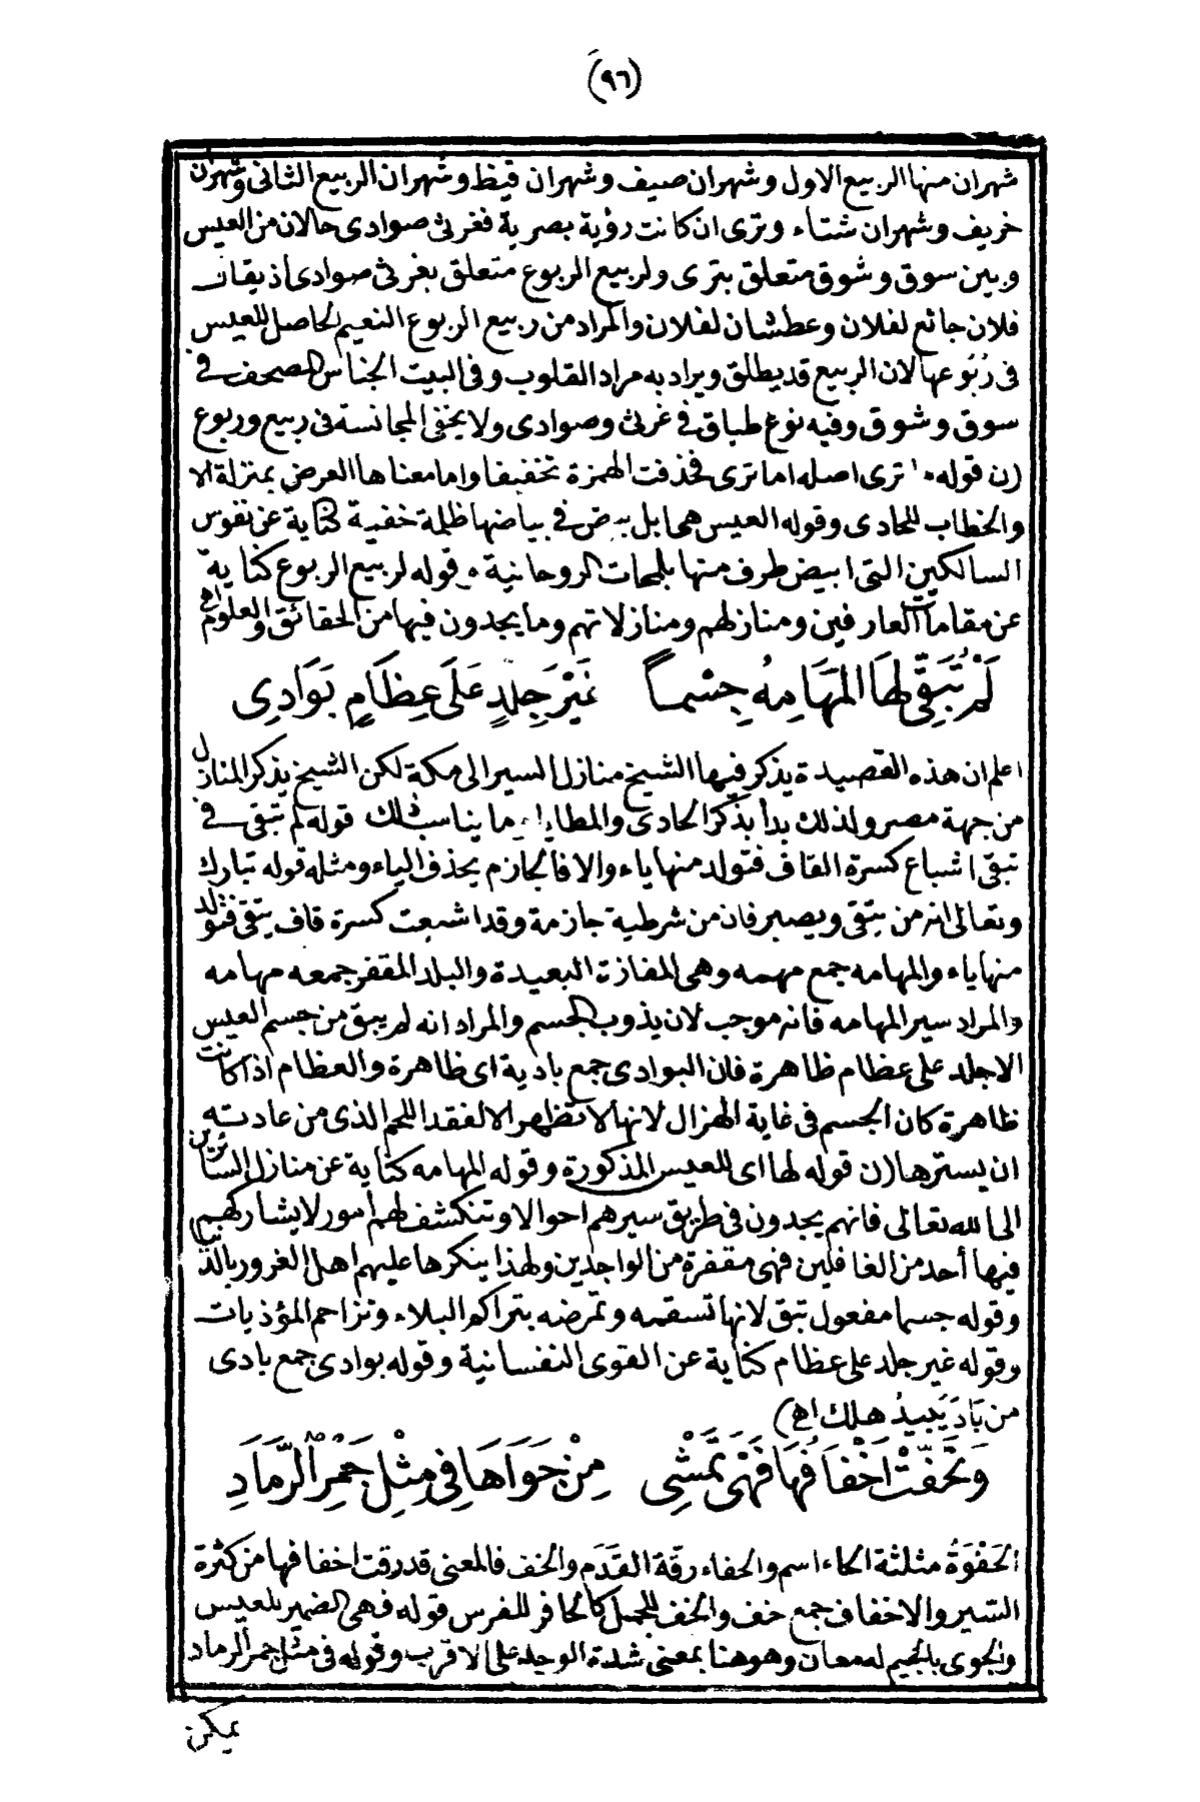 (٩٦)
شهران منها الربيع الاول وشهران صيف وشهران قيظ وشهران الربيع الثانى وشهران
خريف وشهران شتاء وترى ان كانت رؤية بصرية فغرثى صوادى حالان من العيس
وبين سوق وشوق متعلق بترى ولربيع الربوع متعلق بغرثى صوادى اذ يقال
فلان جائع لفلان وعطشان لفلان والمراد من ربيع الربوع النعيم الحاصل للعيس
فى رُبُوعها لان الربيع قد يطلق ويراد به مراد القلوب وفى البيت الجناس المصحف فى
سوق وشوق وفيه نوع طباق فى غرثى وصوادى ولا يخفى المجانسة فى ربيع وربوع
(ن قوله ما ترى اصله اما ترى فحذفت الهمزة تخفيفا واما معناها العرض بمنزلة الا
والخطاب للحادى وقوله العيس هى ابل بيض فى بياضها ظلمة خفية كناية عن نفوس
السالكين التى ابيض طرف منها بلمحات الروحانية وقوله لربيع الربوع كناية
عن مقامات العارفين ومنازلهم ومنازلاتهم وما يجدون فيها من الحقائق والعلوم اه)
لَمْ تُبَقِّى لهَا المَهَامِهُ جِسْماً غَيْرَ جِلدٍ عَلَى عِظَامٍ بَوَادِى
اعلم ان هذه القصيدة يذكر فيها الشيخ منازل السير الى مكة لكن الشيخ يذكر المنازل
من جهة مصر ولذلك بدأ بذكر الحادى والمطايا وما يناسب ذلك قوله لم تبقى فى
تبقى اشباع كسرة القاف فتولد منها ياء والا فالجازم يحذف الياء ومثله قوله تبارك
وتعالى انه من يتقى ويصبر فان من شرطية جازمة وقد اشبعت كسرة قاف يتقى فتولد
منها ياء والمهامه جمع مهمه وهى المفازة البعيدة والبلد المقفر جمعه مهامه
والمراد سير المهامه فانه موجب لان يذوب الجسم والمراد انه لم يبق من جسم العيس
الا جلد على عظام ظاهرة فان البوادى جمع بادية اى ظاهرة والعظام اذا كانت
ظاهرة كان الجسم فى غاية الهزال لانها لا تظهر الا لفقد اللحم الذى من عادته
ان يسترها (ن قوله لها اى للعيس المذكورة وقوله المهامه كناية عن منازل السائرين
الى الله تعالى فانهم يجدون فى طريق سيرهم احوالا وتنكشف لهم أمور لا يشاركهم
فيها أحد من الغافلين فهى مقفرة من الواجدين ولهذا ينكرها عليهم اهل الغرور بالدنيا
وقوله جسما مفعول تبق لانها تسقمه وتمرضه بتراكم البلاء وتزاحم المؤذيات
وقوله غير جلد على عظام كناية عن القوى النفسانية وقوله بوادى جمع بادى
من بَادَ يَبِيدُ هلك اه)
وَتَحَفّتْ اَخْفَافُهَا فَهْىَ تَمْشِى مِنْ جَوَاهَا فِى مِثْلِ جَمْرِ الرَّمَادِ
الحَفْوَةُ مثلثة الحاء اسم والحفاء رقة القَدَم والخف فالمعنى قد رقت اخفافها من كثرة
السير والاخفاف جمع خف والخف للجمل كالحافر للفرس قوله فهى الضمير للعيس
والجوى بالجيم له معان وهو هنا بمعنى شدة الوجد على الاقرب وقوله فى مثل جمر الرماد
يمكن